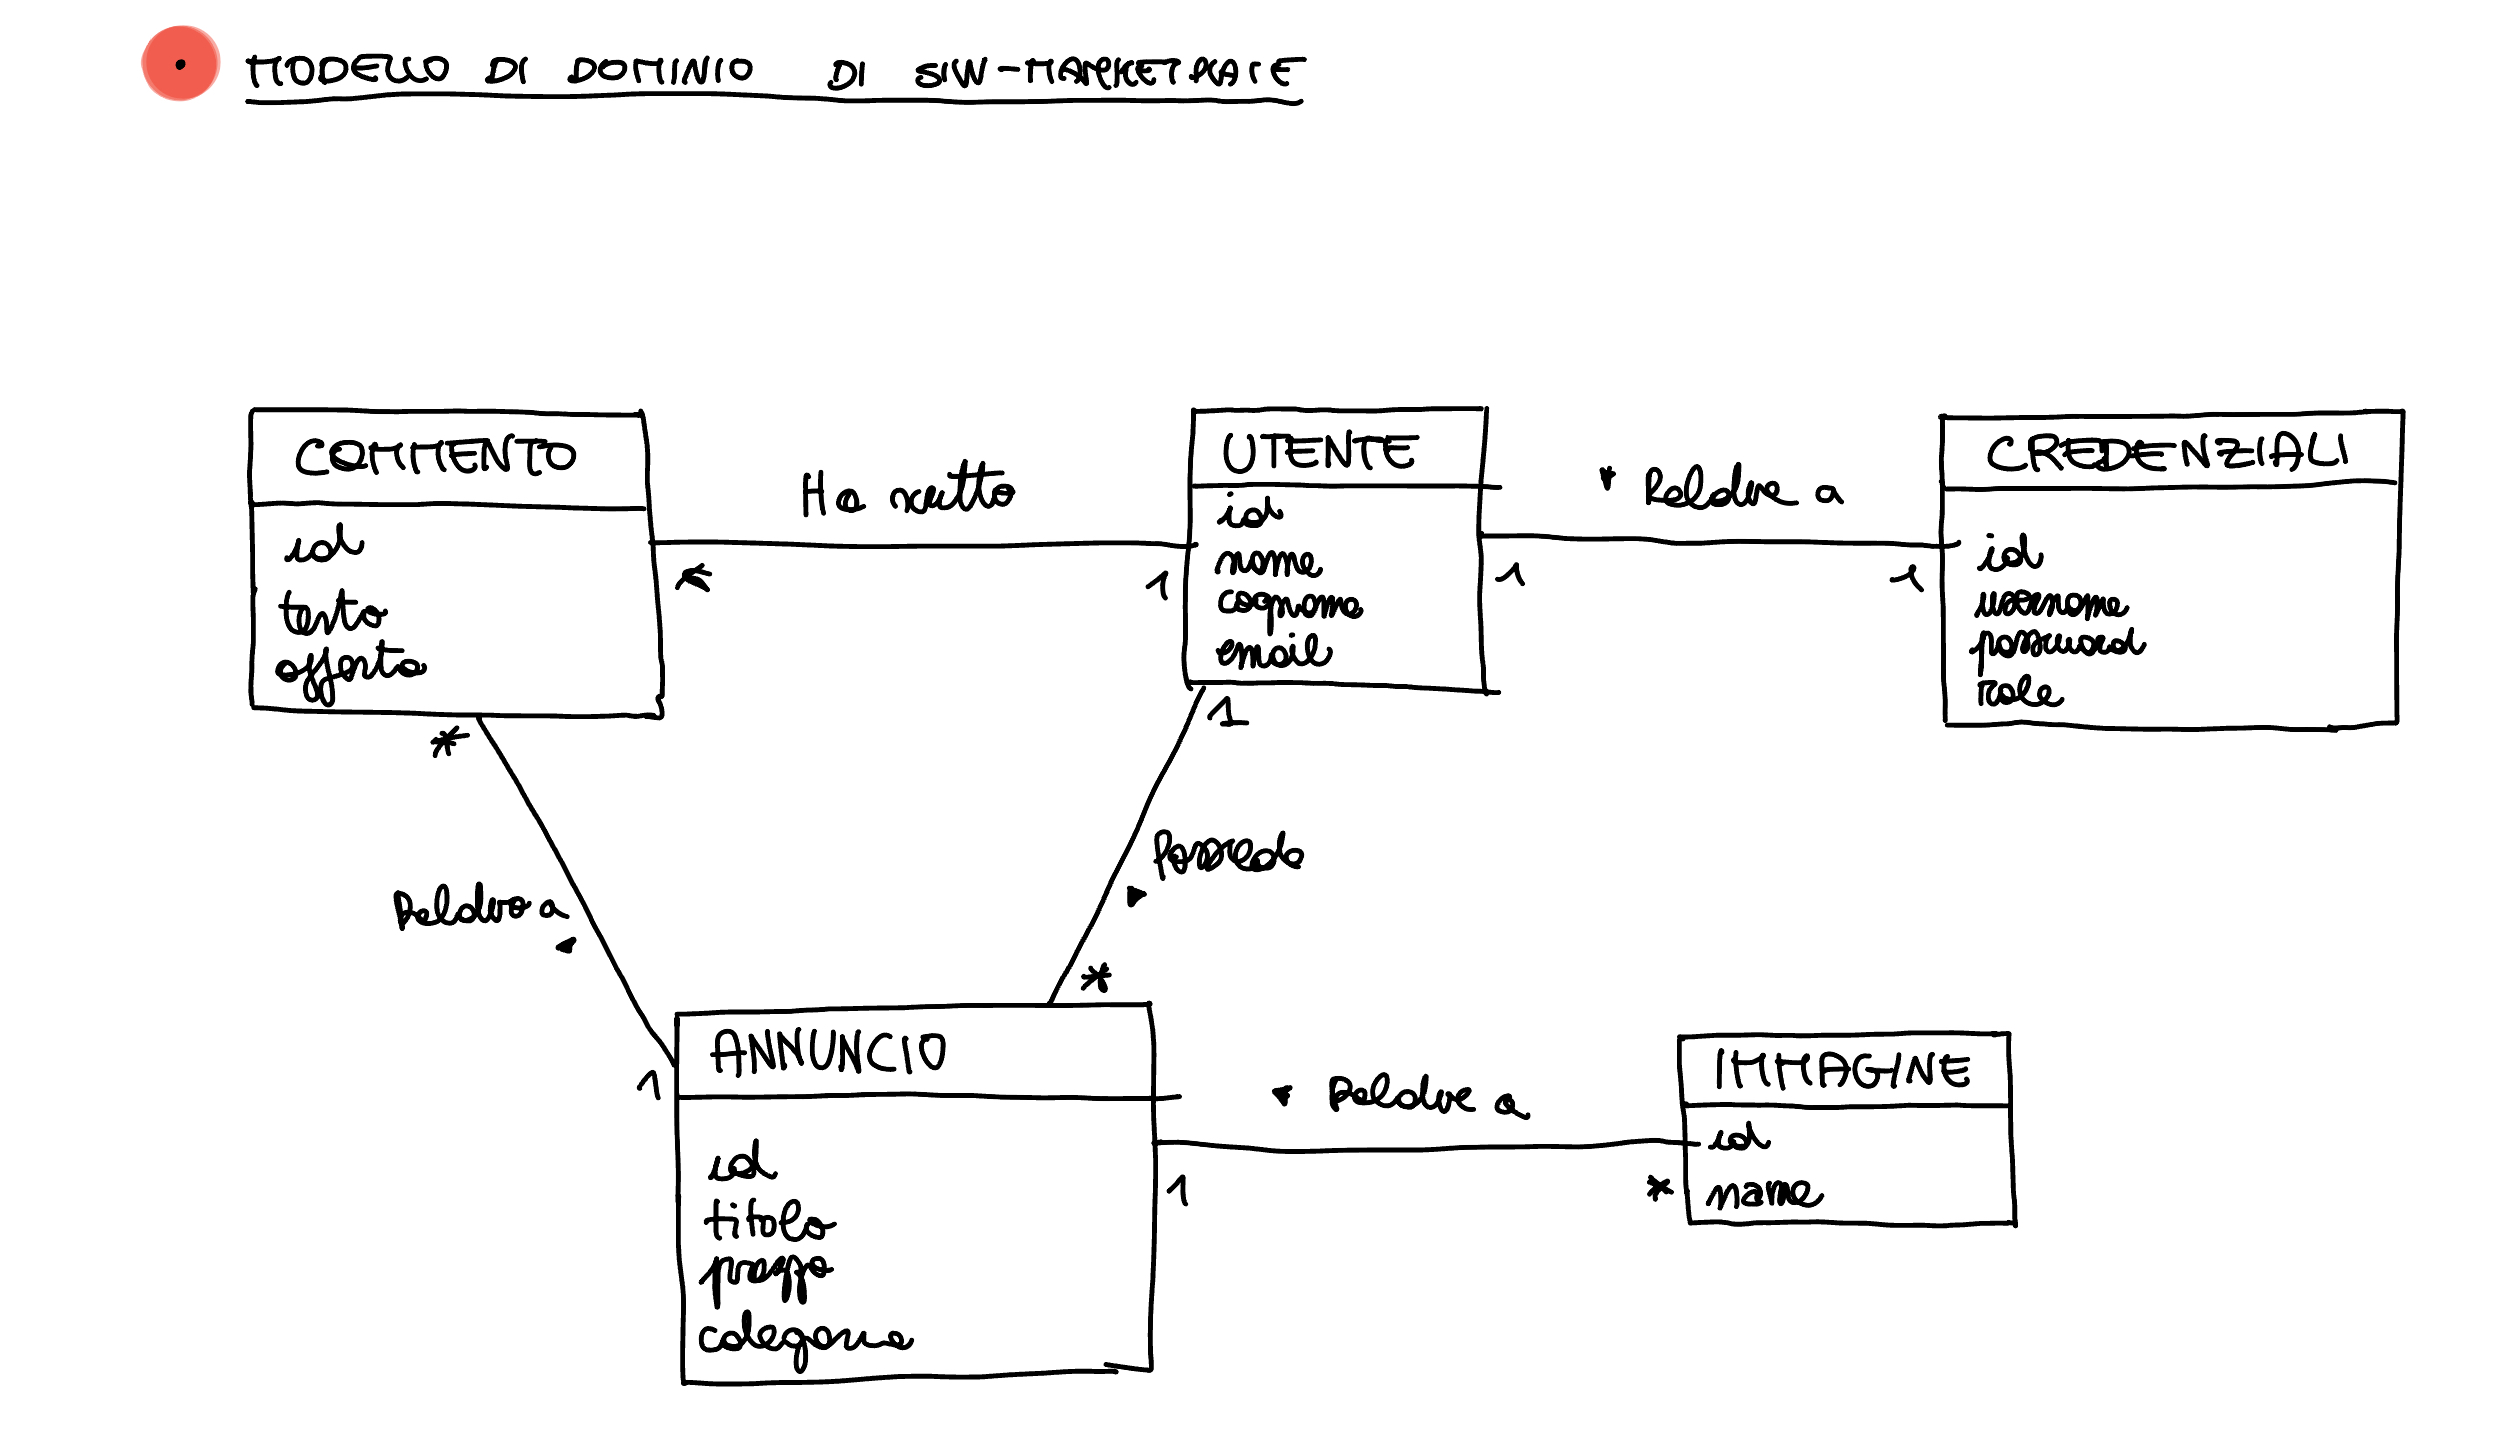 MODELLO DI DOMINIO DI SIW-MARKETPLACE
COMMENTO
id
testo
offerta
Ha scritto
*
1
UTENTE
id
nome
cognome
email
Relative a
1
1
CREDENZIALI
id
username
password
role
*
Relativo a
1
1
Possiede
*
ANNUNCIO
id
titolo
prezzo
categoria
Relative a
1
*
IMMAGINE
id
name